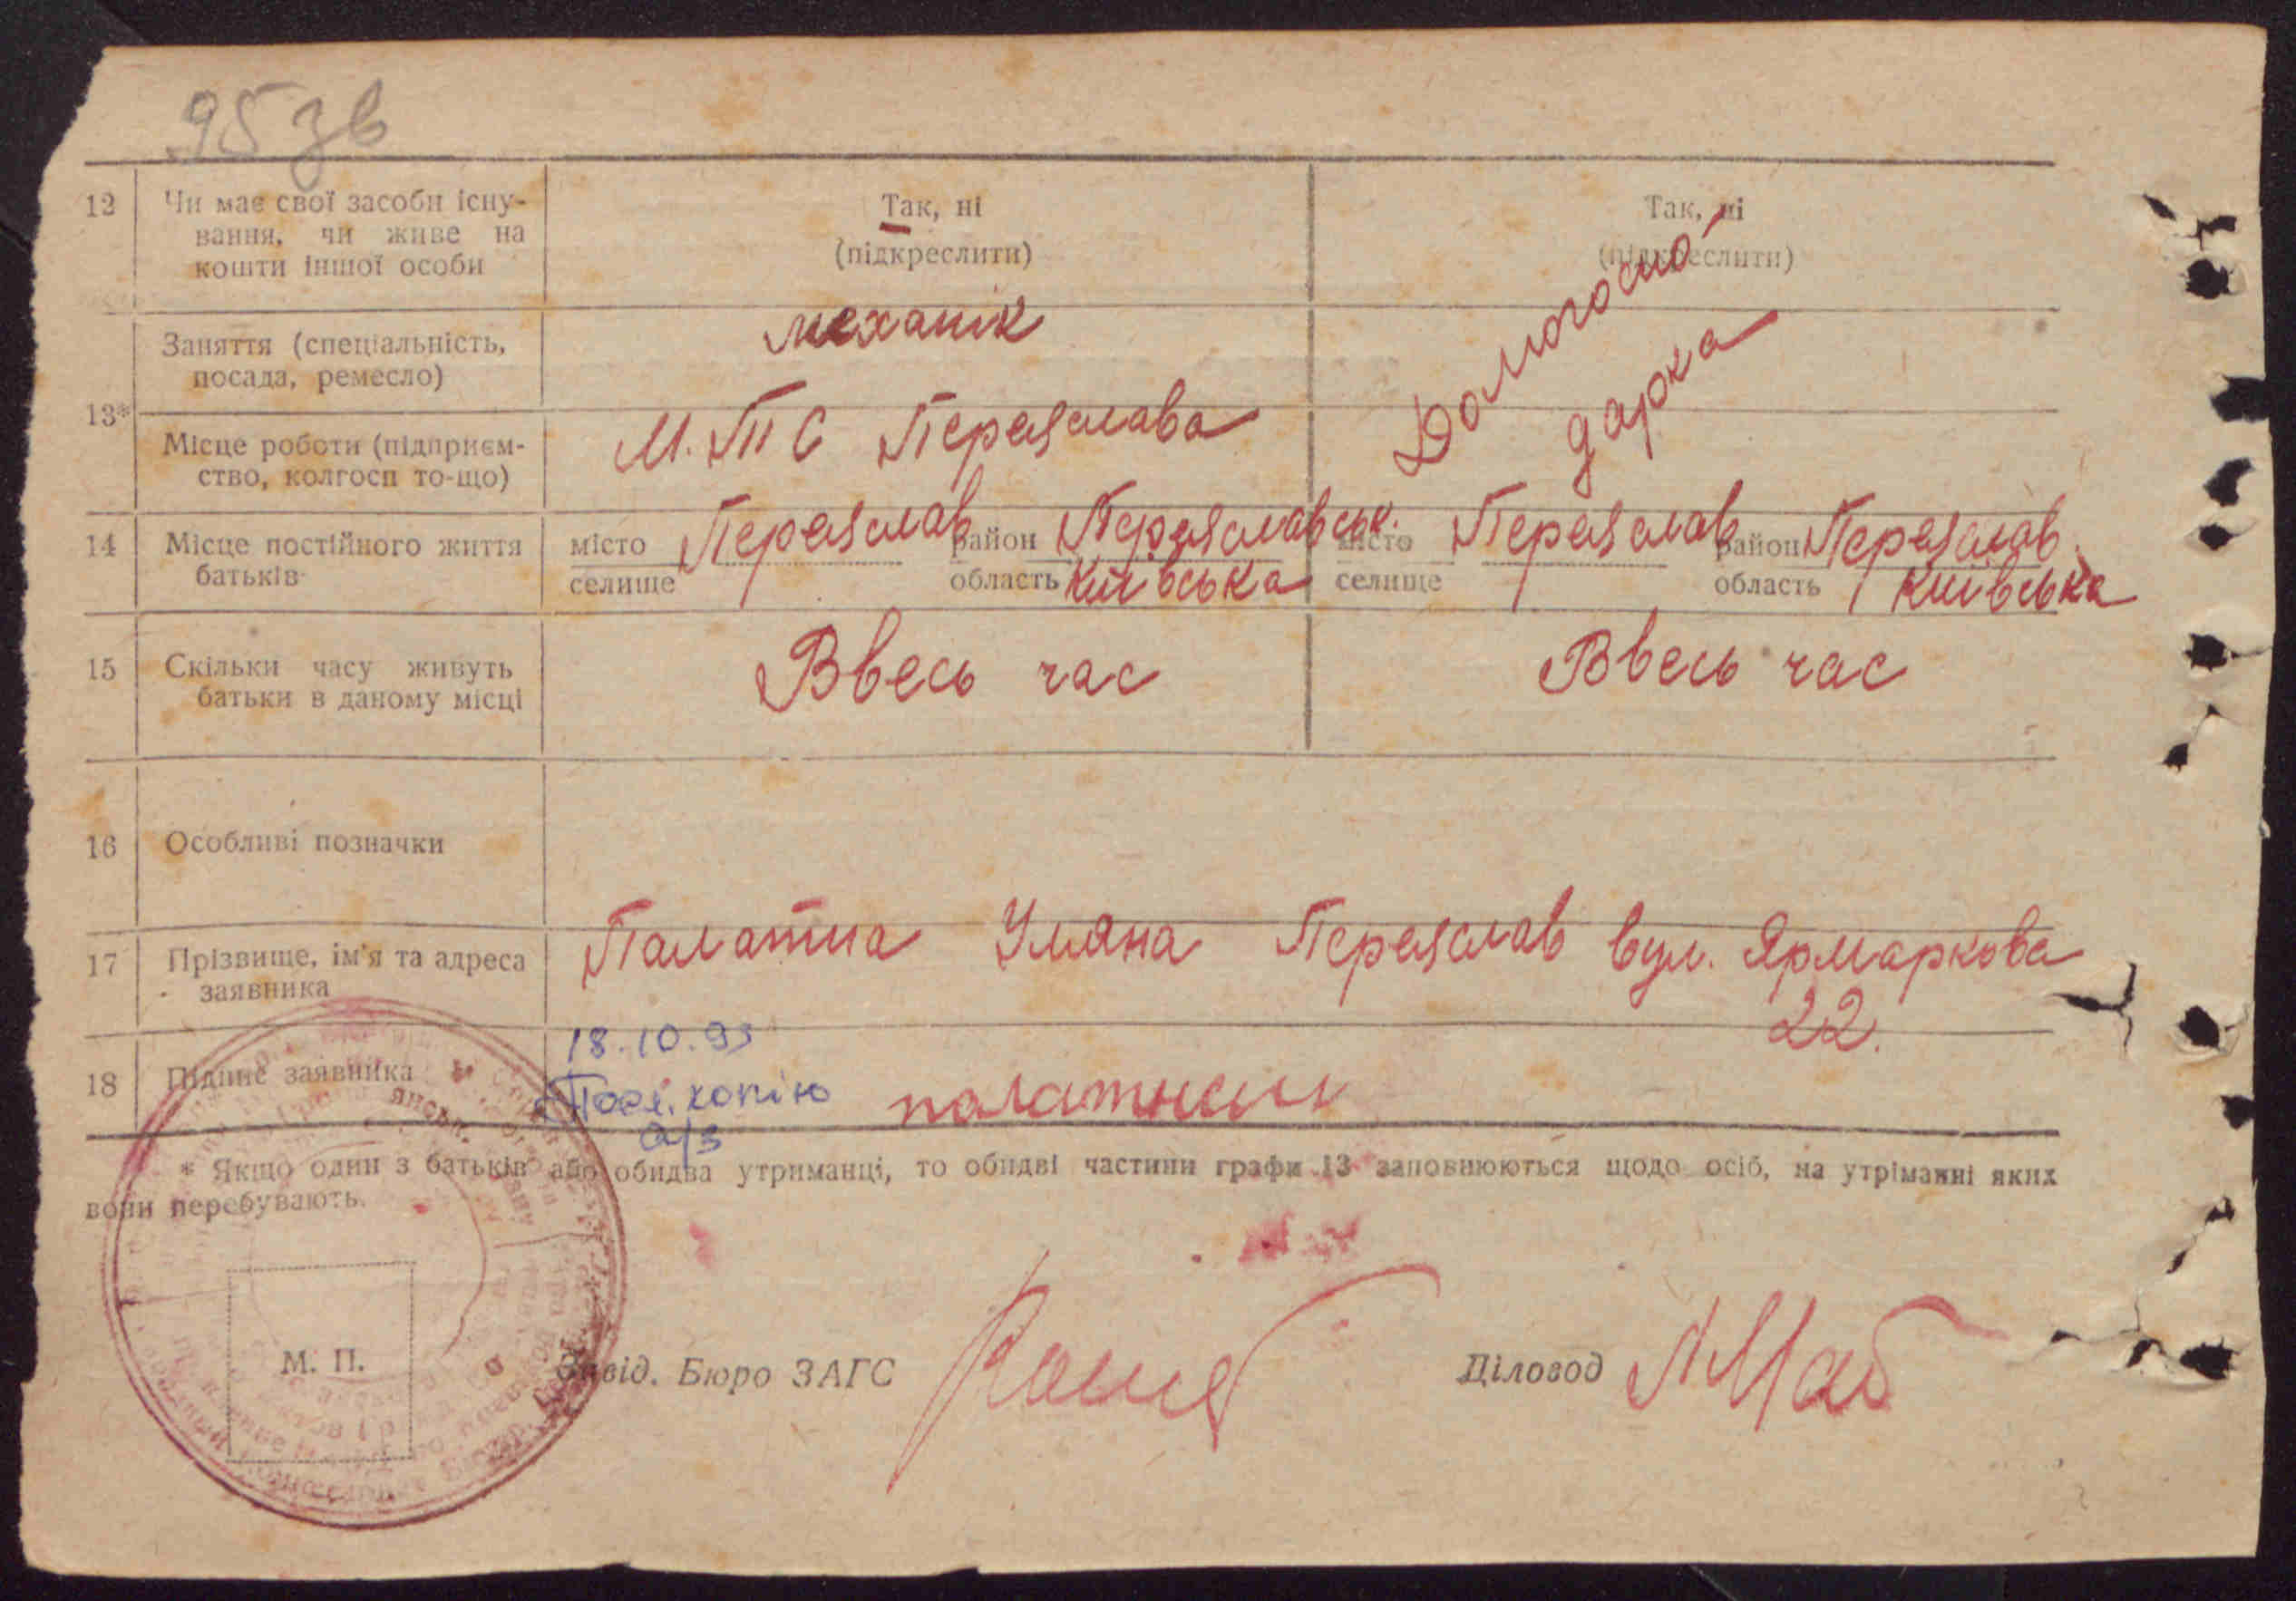 95 зв
12 Чи має свої засоби існу- Так, ні Так, ні
вання, чи живе на (підкреслити) (підкреслити)
кошти іншої особи
13* Заняття (спеціальність, механік Домогоспо-
посада, ремесло) дарка
Місце роботи (підприєм- М.Т С Переяслава
ство, колгосп то-що)
14 Місце постійного життя місто Переяслав район Переяславськ. місто Переяслав район Переяслав.
батьків селище область Київська селище область Київська
15 Скільки часу живуть Ввесь час Ввесь час
батьки в даному місці
16 Особливі позначки
17 Прізвище, ім'я та адреса Палатна Уляна Переяслав вул. Ярмаркова
заявника 22.
18.10.93
18 Підпис заявника копію
а/з
* Якщо один з батьків або обидва утриманці, то обидві частини графи 13 заповнюються щодо осіб, на утріманні яких
вони перебувають.
М. П.
Завід. Бюро ЗАГС Діловод